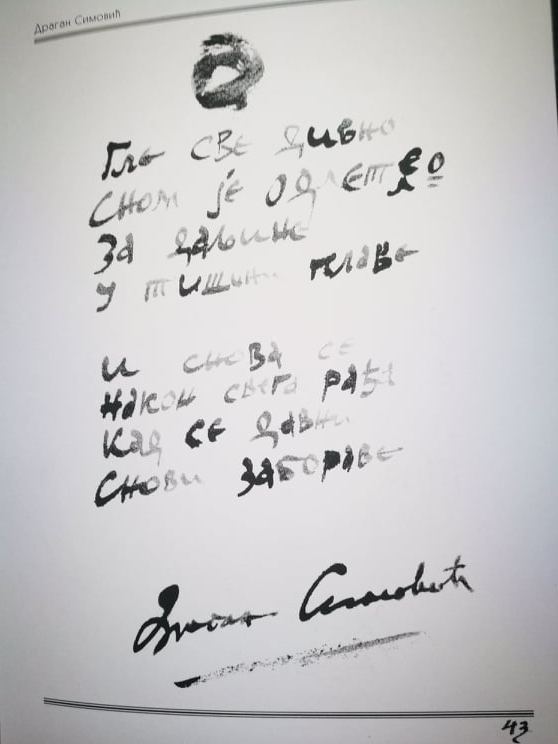 Драган Симовић
Гле све дивно
сном је одлетело
за даљине
у тишини плаве
и снова се
након свега рађа
кад се давни
снови забораве
Драган Симовић
43